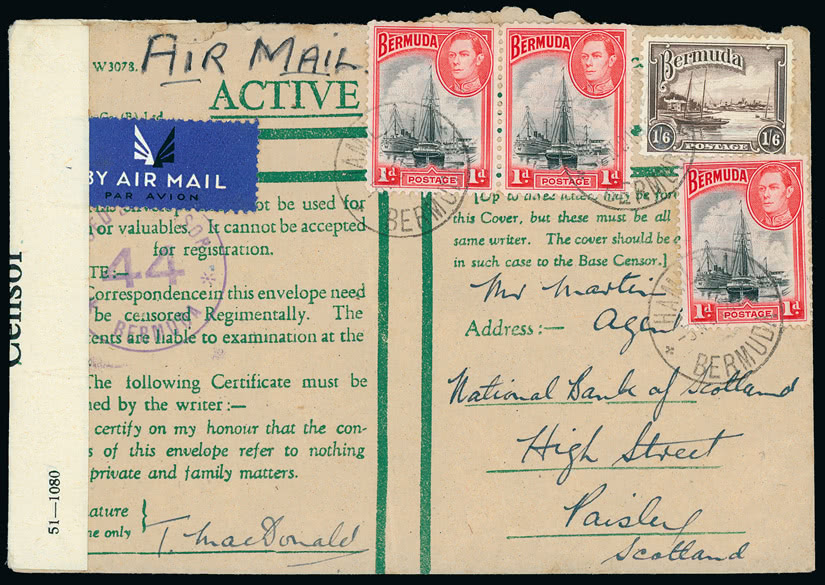 AIR MAIL
W3078.
ACTIVE
BY AIR MAIL
PAR AVION
not be used for
or valuables. It cannot be accepted
for registration.
TE:—
Correspondence in this envelope need
be censored Regimentally. The
ents are liable to examination at the
44
BERMUDA
The following Certificate must be
ned by the writer:—
certify on my honour that the con-
s of this envelope refer to nothing
private and family matters.
ature
ne only
T. MacDonald
Censor
51—1080
BERMUDA
1d
POSTAGE
1d
BERMUDA
1d
POSTAGE
1d
Bermuda
1/6
POSTAGE
1/6
BERMUDA
1d
POSTAGE
1d
BERMUDA
BERMUDA
HAM
BERMUDA
this Cover, but these must be all
same writer. The cover should be
in such case to the Base Censor.]
Mr Martin
Agent
Address:—
National Bank of Scotland
High Street
Paisley
Scotland